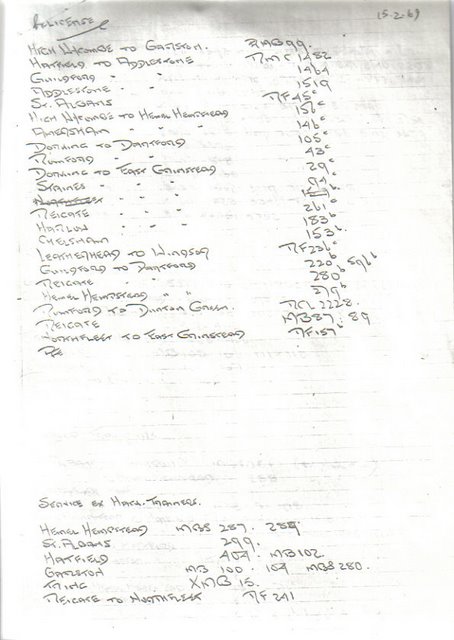 RELICENSE 15.2.69
HIGH WYCOMBE TO GARSTON. XMB 99.
HATFIELD TO ADDLESTONE RMC 1482
GUILDFORD " " 1464
ADDLESTONE 1519
ST. ALBANS RF 45ᶜ
HIGH WYCOMBE TO HEMEL HEMPSTEAD 156ᶜ
AMERSHAM " " 146ᶜ
DORKING TO DARTFORD 105ᶜ
ROMFORD " " 43ᶜ
DORKING TO EAST GRINSTEAD 29ᶜ
STAINES " " 94ᶜ
NORTHFLEET " "
REIGATE " " 261ᶜ
HARLOW " " 183ᵇ
CHELSHAM 153ᵇ
LEATHERHEAD TO WINDSOR RF 236ᶜ
GUILDFORD TO DARTFORD 220ᵇ
REIGATE " " 280ᵇ
HEMEL HEMPSTEAD " " 279ᵇ
ROMFORD TO DUNTON GREEN. RCL 2228.
REIGATE MB 87. 89
NORTHFLEET TO EAST GRINSTEAD RF 157ᵇ
SERVICE EX MECH. TRAINERS.
HEMEL HEMPSTEAD MBS 287. 288
ST. ALBANS 299.
HATFIELD 404. MB 102.
GARSTON MB 100. 104 MBS 280.
TRING XMB 15.
REIGATE TO NORTHFLEET RF 241